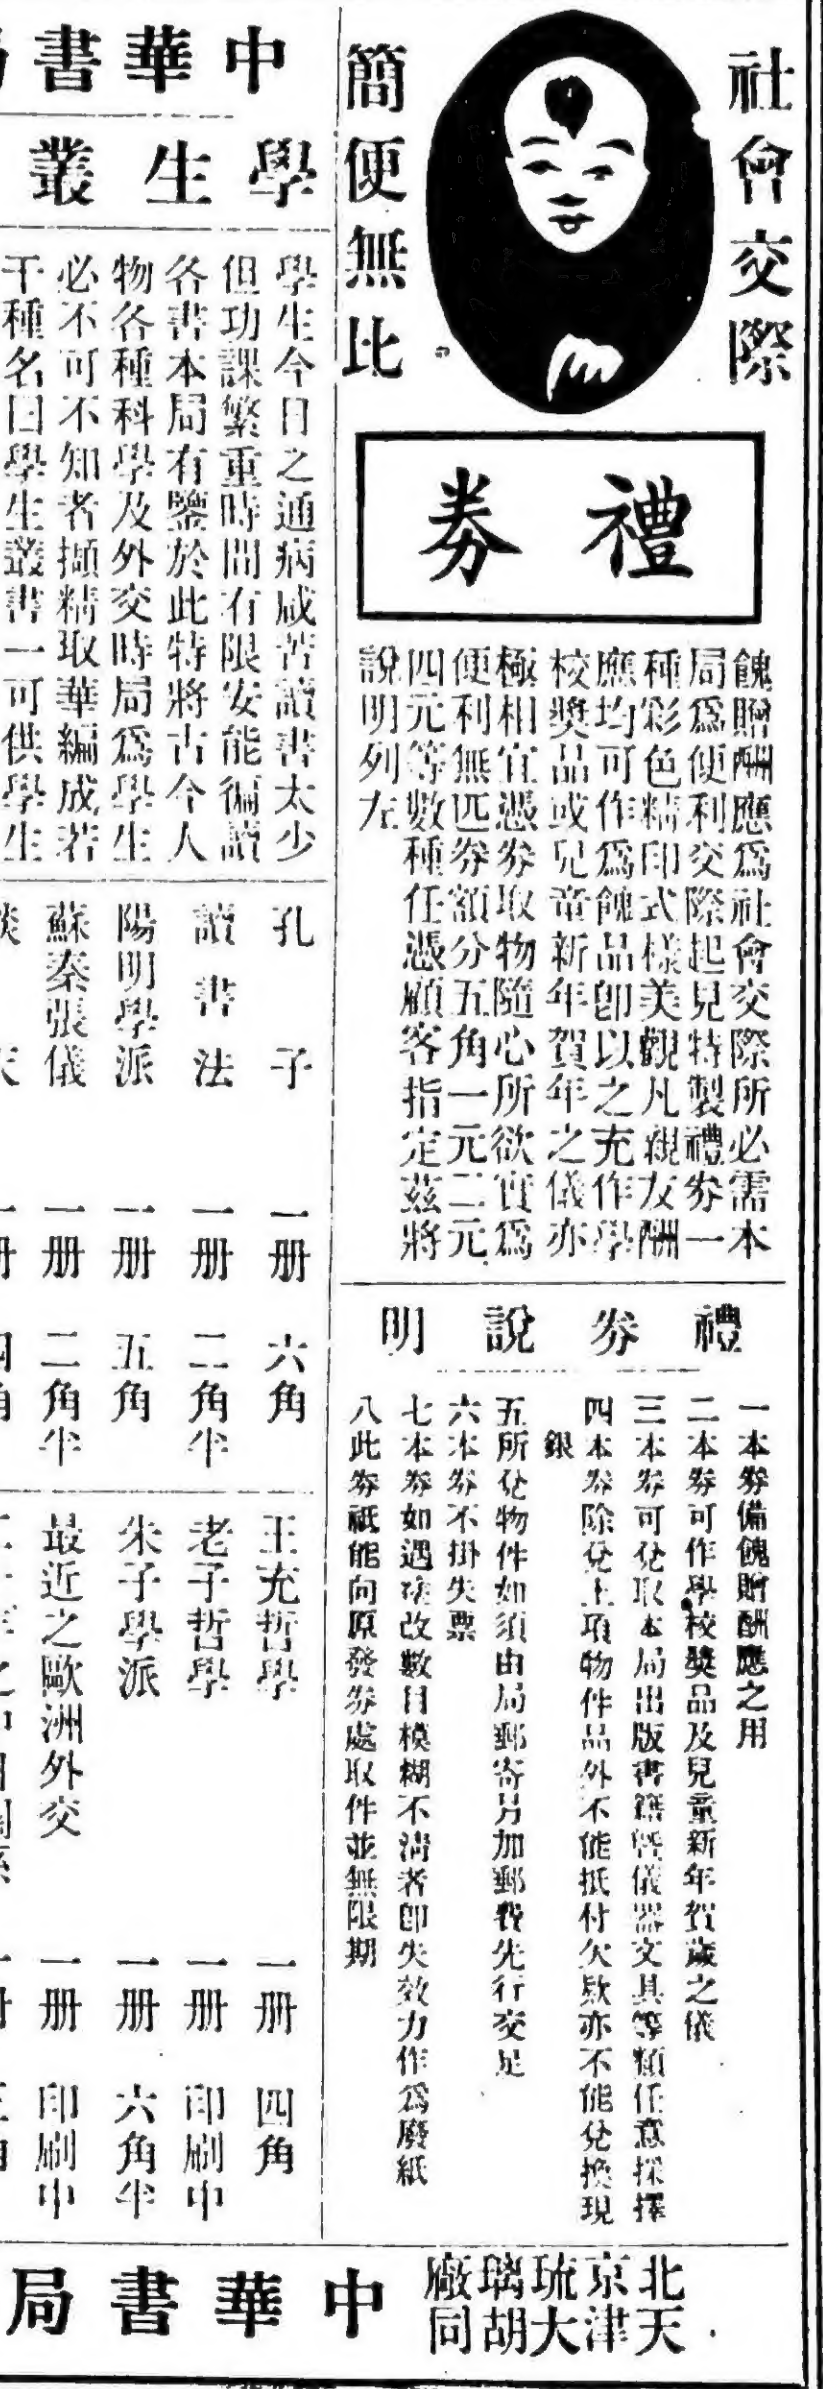 社會交際
簡便無比
禮券
餽贈酬應爲社會交際所必需本
局爲便利交際起見特製禮券一
種彩色精印式樣美觀凡親友酬
應均可作爲餽品卽以之充作學
校獎品或兒童新年賀年之儀亦
極相宜憑券取物隨心所欲實爲
便利無匹券額分五角一元二元
四元等數種任憑顧客指定茲將
說明列左
禮券說明
一本券備餽贈酬應之用
二本券可作學校獎品及兒童新年賀歲之儀
三本券可兌取本局出版書籍曁儀器文具等類任意採擇
四本券除兌上項物件品外不能抵付欠款亦不能兌換現
銀
五所兌物件如須由局郵寄另加郵費先行交足
六本券不掛失票
七本券如遇塗改數目模糊不淸者卽失效力作爲廢紙
八此券祇能向原發券處取件並無限期
中華書局
學生叢
學生今日之通病咸苦讀書太少
但功課繁重時間有限安能徧讀
各書本局有鑒於此特將古今人
物各種科學及外交時局爲學生
必不可不知者擷精取華編成若
干種名曰學生叢書一可供學生
孔子 一册 六角
讀書法 一册 二角半
陽明學派 一册 五角
蘇秦張儀 一册 二角半
王充哲學 一册 四角
老子哲學 一册 印刷中
朱子學派 一册 六角半
最近之歐洲外交 一册 印刷中
北京琉璃廠
天津大胡同
中華書局